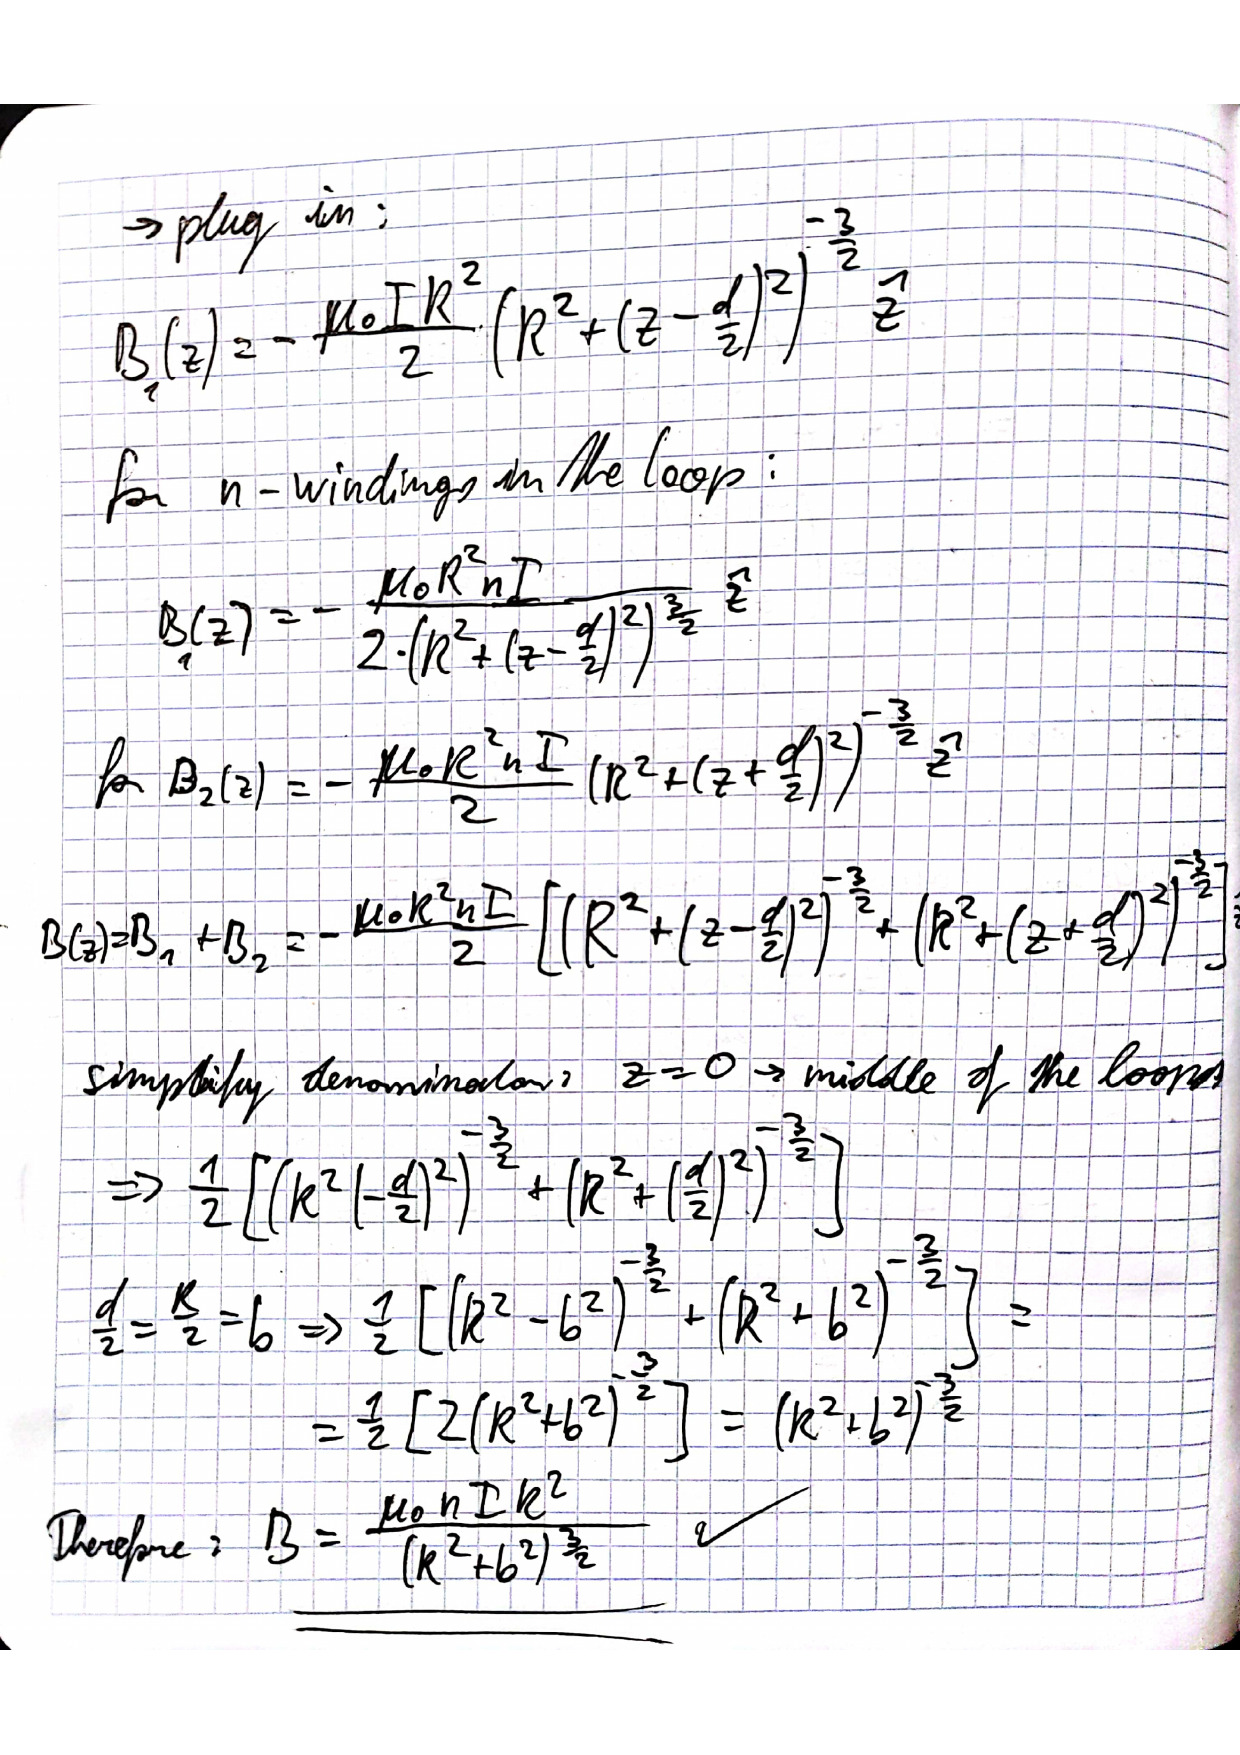 → plug in:
B₁(z) = - μ₀IR²/2 · (R² + (z - d/2)²)^(-3/2) ẑ
for n-windings in the loop:
B₁(z) = - μ₀R²nI / 2·(R² + (z - d/2)²)^(3/2) ẑ
for B₂(z) = - μ₀R²nI/2 (R² + (z + d/2)²)^(-3/2) ẑ
B(z) = B₁ + B₂ = - μ₀R²nI/2 [(R² + (z - d/2)²)^(-3/2) + (R² + (z + d/2)²)^(-3/2)] ẑ
simplify denominator: z = 0 → middle of the loops
⇒ 1/2 [(R² (-d/2)²)^(-3/2) + (R² + (d/2)²)^(-3/2)]
d/2 = R/2 = b ⇒ 1/2 [(R² - b²)^(-3/2) + (R² + b²)^(-3/2)] =
= 1/2 [2(R² + b²)^(-3/2)] = (R² + b²)^(-3/2)
Therefore: B = μ₀nIR² / (R² + b²)^(3/2) ✓